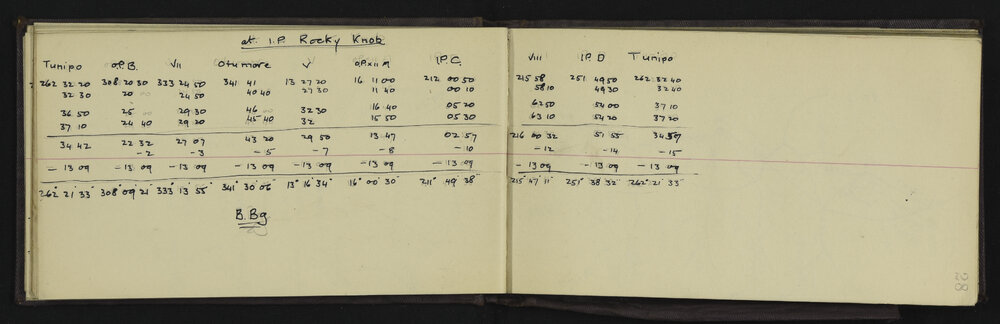 at I.P. Rocky Knob
Tunipo o.P.B. VII Otumore V o.P.XII A I.P.C. VIII I.P.D Tunipo
262 32 20 308 20 30 333 24 50 341 41 13 27 20 16 11 00 212 00 50 215 58 251 49 50 262 32 40
32 30 20 00 24 50 40 40 27 30 11 40 00 10 58 10 49 30 32 40
36 50 25 00 29 30 46 00 32 30 16 40 05 20 62 50 54 00 37 10
37 10 24 40 29 20 45 40 32 15 50 05 30 63 10 54 20 37 20
34 42 22 32 27 07 43 20 29 50 13 47 02 57 216 00 32 51 55 34 57
-2 -3 -5 -7 -8 -10 -12 -14 -15
-13 09 -13 09 -13 09 -13 09 -13 09 -13 09 -13 09 -13 09 -13 09 -13 09
262° 21' 33" 308° 09' 21" 333° 13' 55" 341° 30' 06" 13° 16' 34" 16° 00' 30" 211° 49' 38" 215° 47' 11" 251° 38' 32" 262° 21' 33"
B.Bg